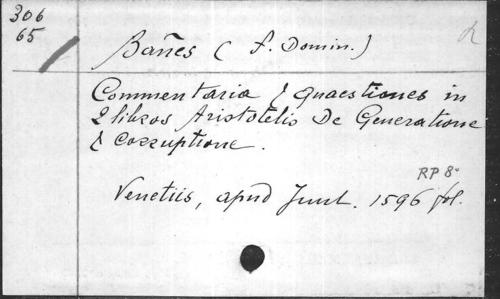 306
65
Bañes (f. Domin.)
Commentaria & quaestiones in
2 libros Aristotelis De Generatione
& Corruptione.
RP 8°
Venetiis, apud Junt. 1596 fol.